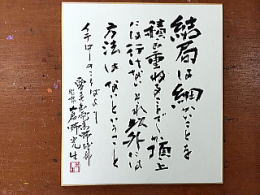 結局は細かいことを
積み重ねることでしか頂上
には行けないそれ以外には
方法はないということ
イチローのことばより